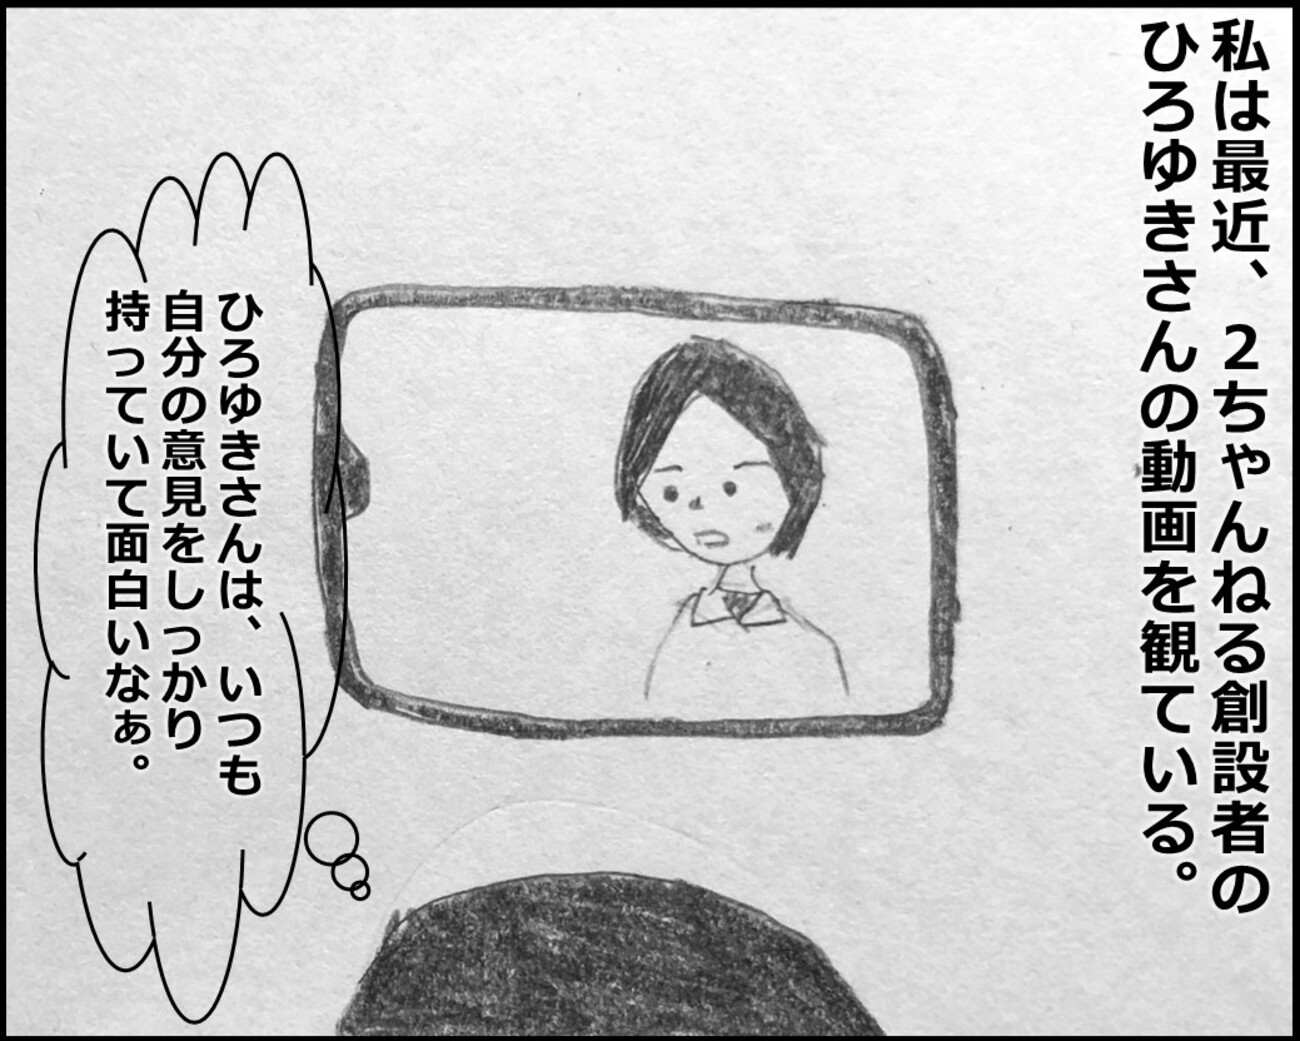 私は最近、２ちゃんねる創設者の
ひろゆきさんの動画を観ている。
ひろゆきさんは、いつも
自分の意見をしっかり
持っていて面白いなぁ。